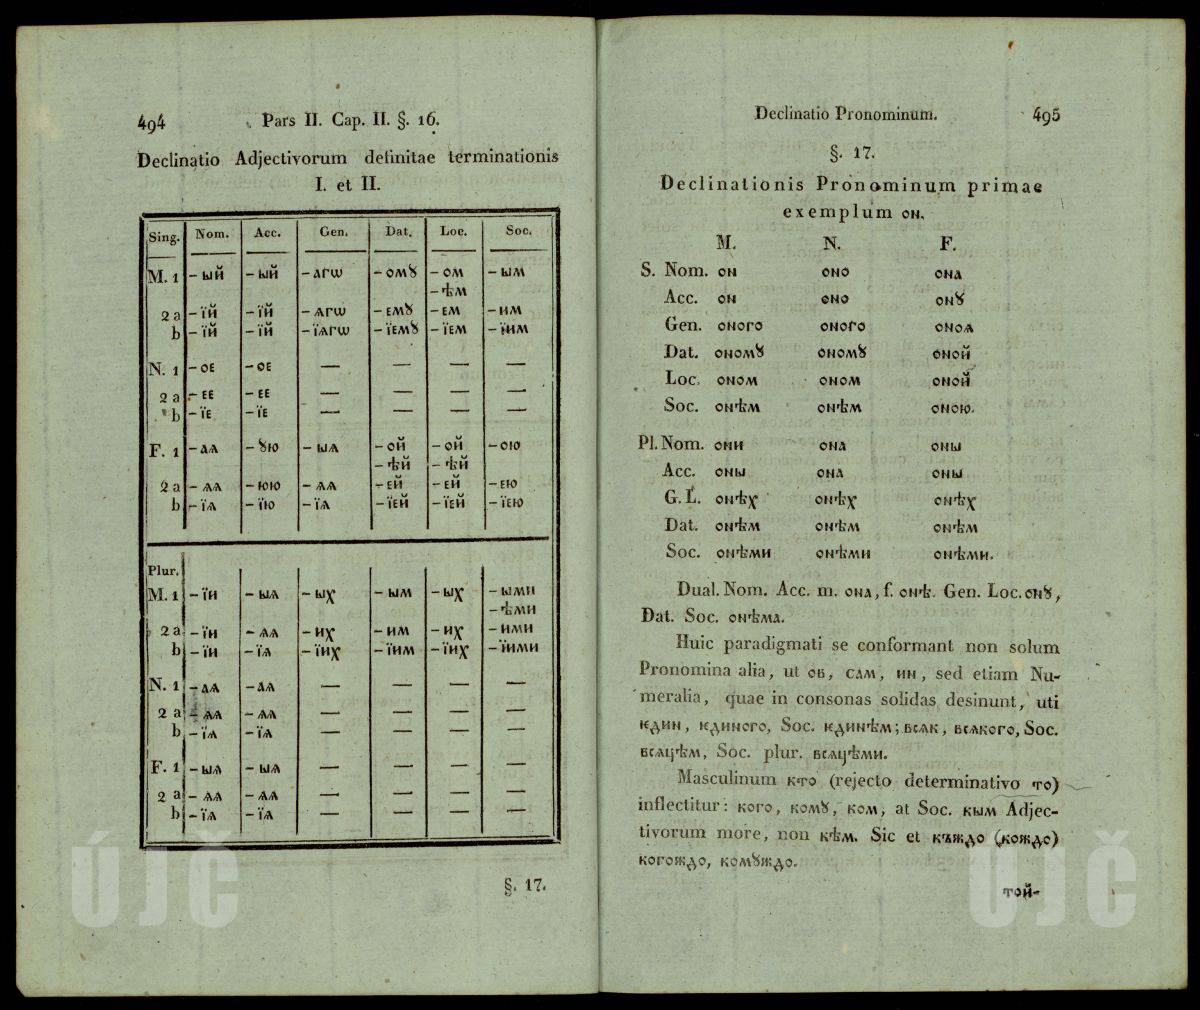 494 Pars II. Cap. II. §. 16.
Declinatio Adjectivorum definitae terminationis
I. et II.
Sing. Nom. Acc. Gen. Dat. Loc. Soc.
M. 1 – ый – ый – агѡ – омꙋ – ом – ым
– ѣм
2 a – їй – їй – ѧгѡ – емꙋ – ем – им
b – їй – їй – їѧгѡ – їемꙋ – їем – їим
N. 1 – ое – ое — — — —
2 a – ее – ее — — — —
b – їе – їе — — — —
F. 1 – аѧ – ꙋю – ыѧ – ой – ой – ою
– ѣй – ѣй
2 a – ѧѧ – юю – ѧѧ – ей – ей – ею
b – їѧ – їю – їѧ – їей – їей – їею
Plur.
M. 1 – їи – ыѧ – ых – ым – ых – ыми
– ѣми
2 a – їи – ѧѧ – их – им – их – ими
b – їи – їѧ – їих – їим – їих – їими
N. 1 – аѧ – аѧ — — — —
2 a – ѧѧ – ѧѧ — — — —
b – їѧ – їѧ — — — —
F. 1 – ыѧ – ыѧ — — — —
2 a – ѧѧ – ѧѧ — — — —
b – їѧ – їѧ — — — —
§. 17.
Declinatio Pronominum. 495
§. 17.
Declinationis Pronominum primae
exemplum он.
M. N. F.
S. Nom. он оно она
Acc. он оно онꙋ
Gen. оного оного оноѧ
Dat. ономꙋ ономꙋ оной
Loc. оном оном оной
Soc. онѣм онѣм оною.
Pl. Nom. они она оны
Acc. оны она оны
G. L. онѣх онѣх онѣх
Dat. онѣм онѣм онѣм
Soc. онѣми онѣми онѣми.
Dual. Nom. Acc. m. она, f. онѣ. Gen. Loc. онꙋ,
Dat. Soc. онѣма.
Huic paradigmati se conformant non solum
Pronomina alia, ut ов, сам, ин, sed etiam Nu-
meralia, quae in consonas solidas desinunt, uti
ѥдин, ѥдиного, Soc. ѥдинѣм; всѧк, всѧкого, Soc.
всѧцѣм, Soc. plur. всѧцѣми.
Masculinum кто (rejecto determinativo то)
inflectitur: кого, комꙋ, ком, at Soc. кым Adjec-
tivorum more, non кѣм. Sic et къждо (кождо)
когождо, комꙋждо.
той-
ÚJČ
ÚJČ